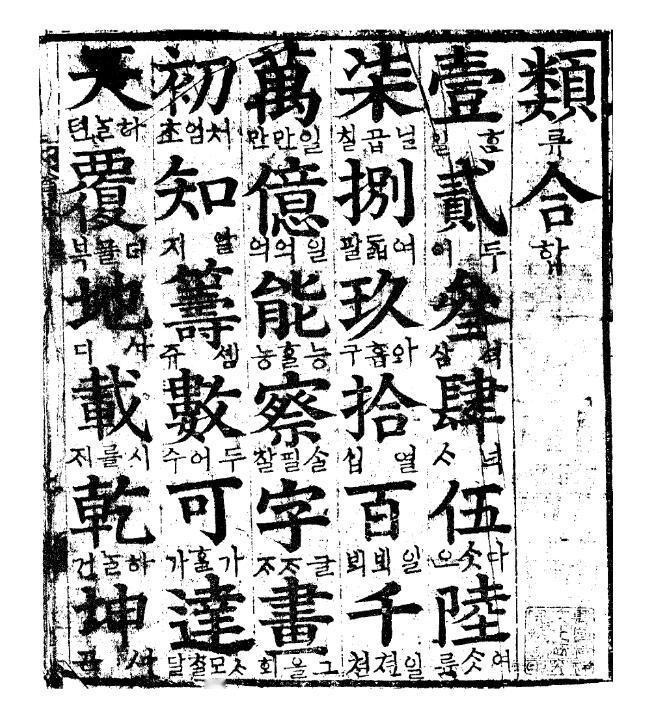 類 류 合 합
壹 ᄒᆞᆫ 일 貳 두 이 叁 석 삼 肆 넉 ᄉᆞ 伍 다ᄉᆞᆺ 오 陸 여ᄉᆞᆺ 륙
柒 닐곱 칠 捌 여ᄃᆞᆲ 팔 玖 아홉 구 拾 열 십 百 일ᄇᆡᆨ ᄇᆡᆨ 千 일쳔 쳔
萬 일만 만 億 일억 억 能 능ᄒᆞᆯ 능 察 ᄉᆞᆯ필 찰 字 글ᄌᆞ ᄌᆞ 畫 그을 회
初 처엄 초 知 알 지 籌 셈 쥬 數 두어 수 可 가ᄒᆞᆯ 가 達 ᄉᆞᄆᆞᆺ 달
天 하ᄂᆞᆯ 텬 覆 더플 복 地 디 載 시를 ᄌᆡ 乾 하ᄂᆞᆯ 건 坤